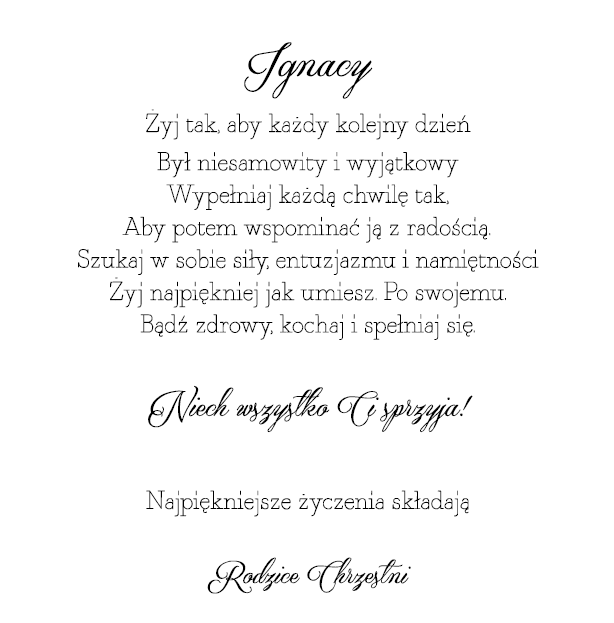 Ignacy
Żyj tak, aby każdy kolejny dzień
Był niesamowity i wyjątkowy
Wypełniaj każdą chwilę tak,
Aby potem wspominać ją z radością.
Szukaj w sobie siły, entuzjazmu i namiętności
Żyj najpiękniej jak umiesz. Po swojemu.
Bądź zdrowy, kochaj i spełniaj się.
Niech wszystko Ci sprzyja!
Najpiękniejsze życzenia składają
Rodzice Chrzestni